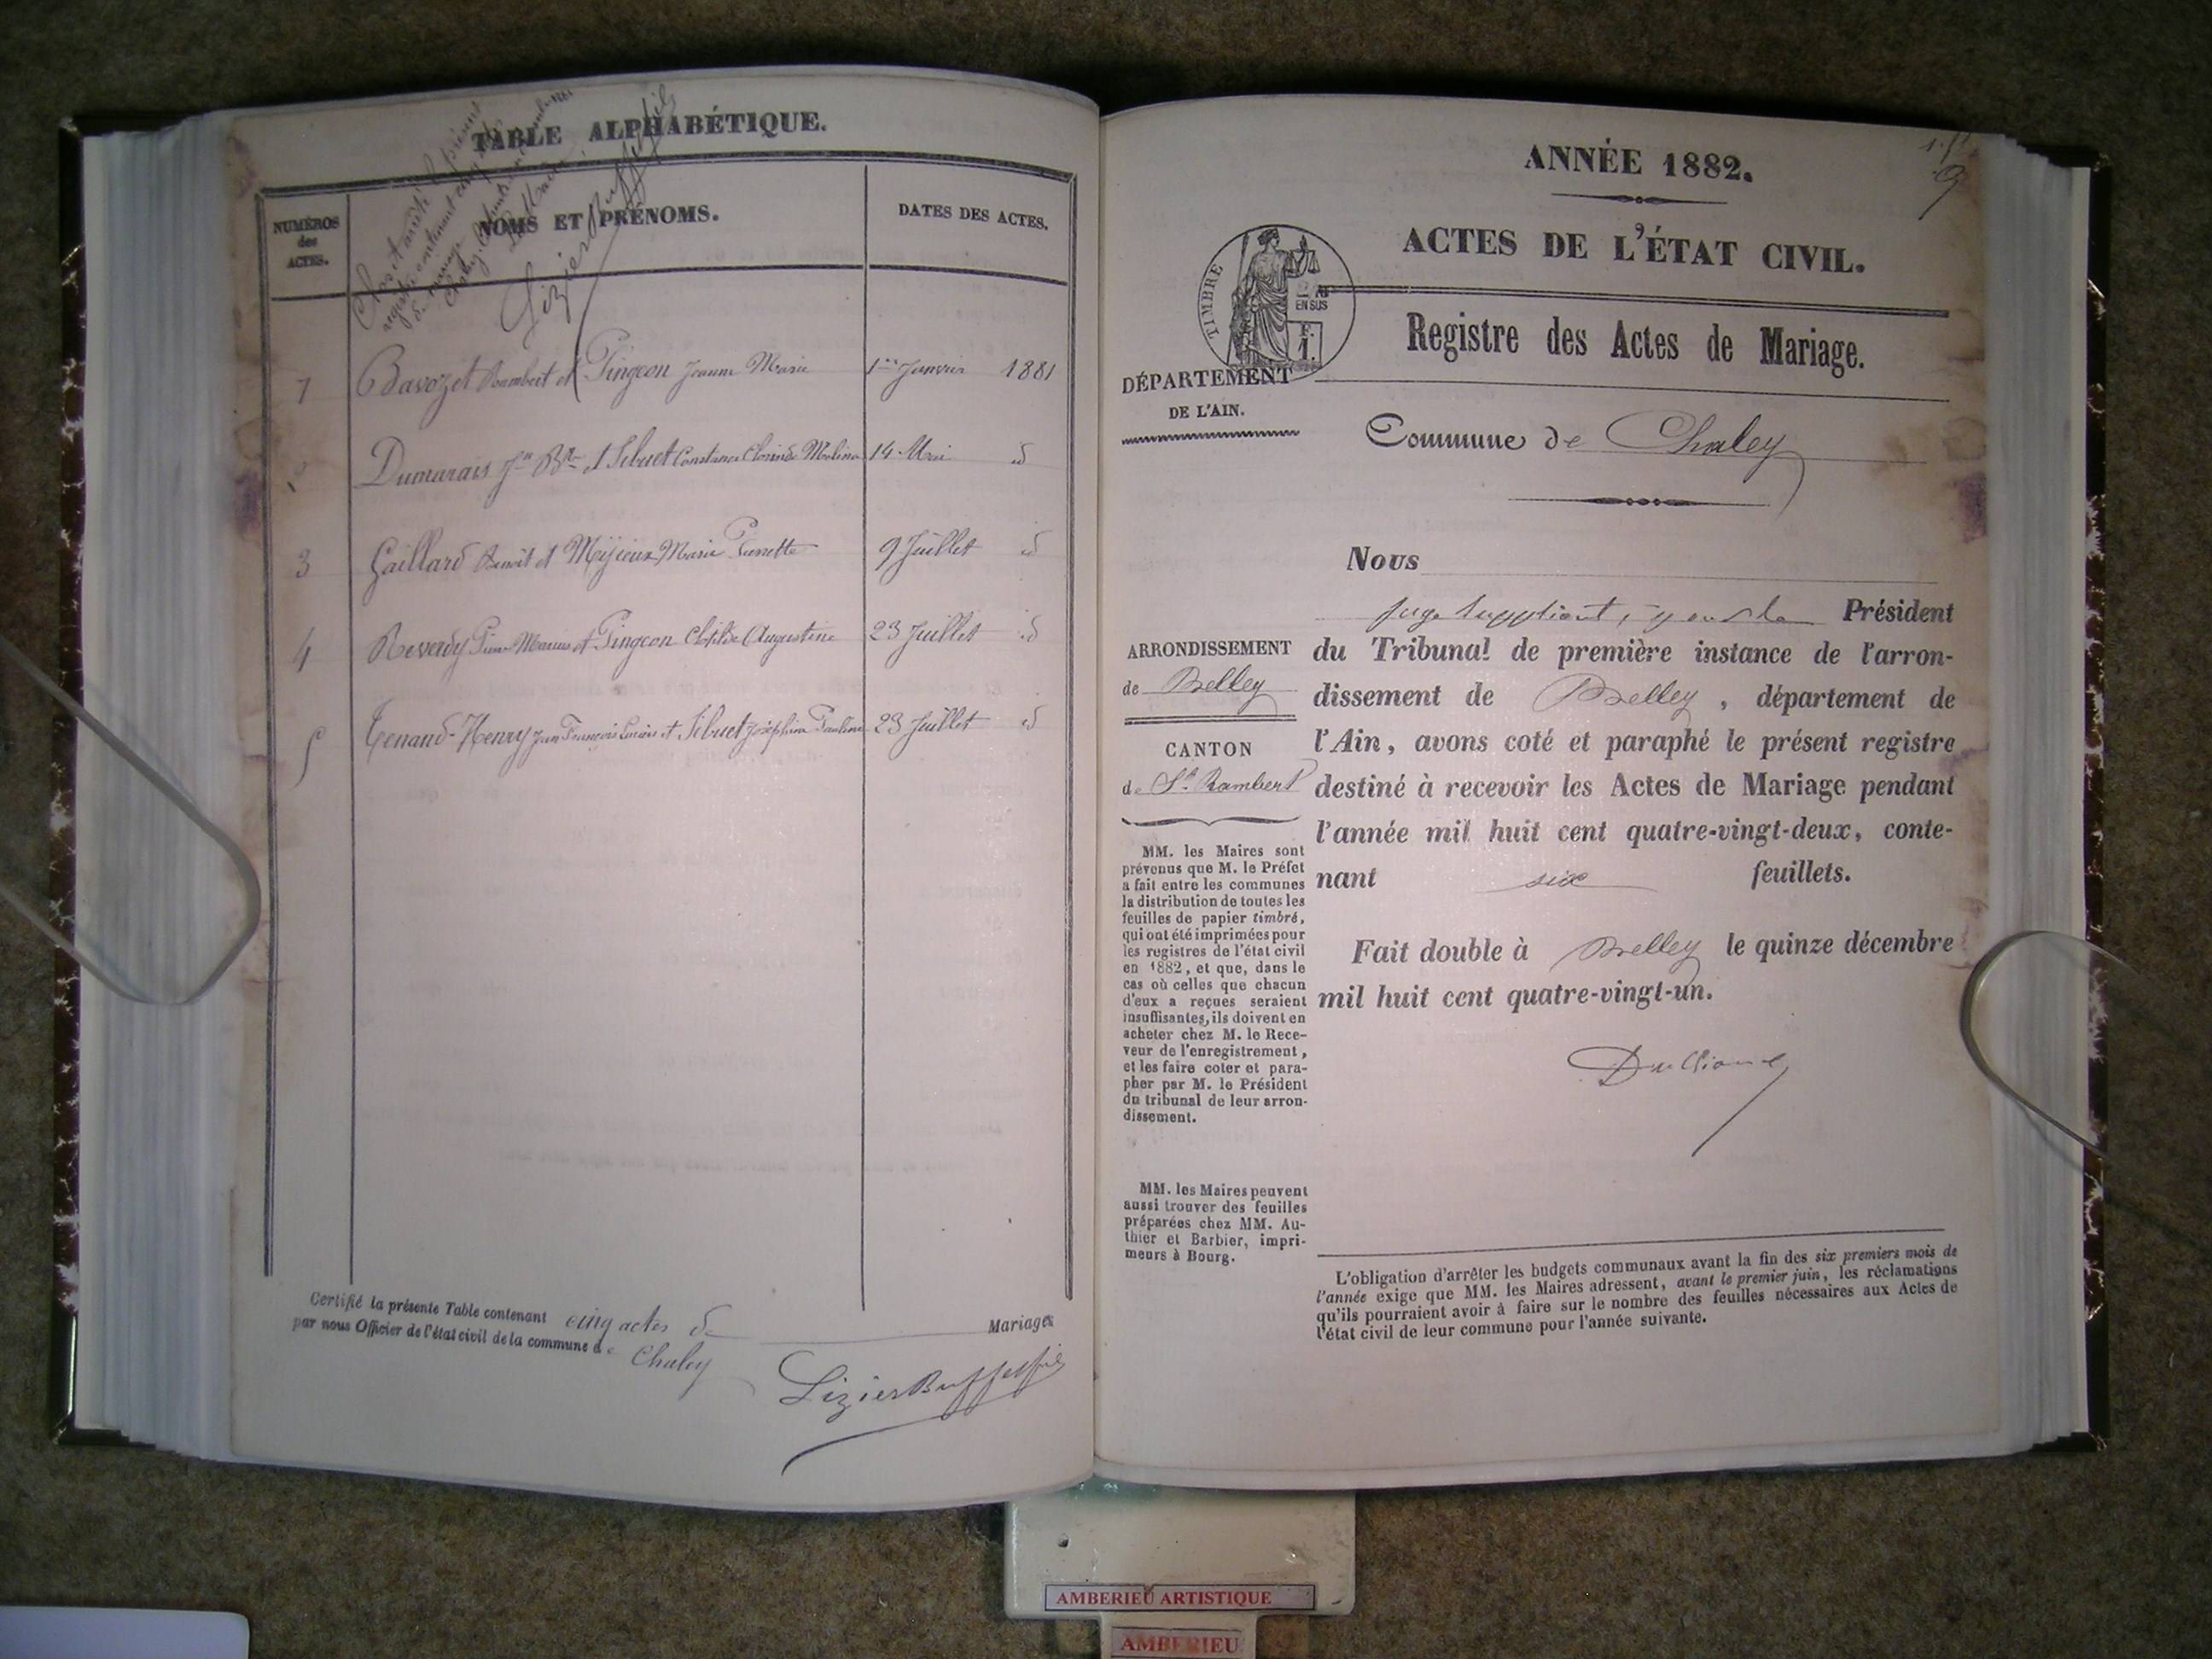 TABLE ALPHABÉTIQUE.
NUMÉROS
des
ACTES.
NOMS ET PRÉNOMS.
DATES DES ACTES.
Clos et arrêté le présent
registre contenant cinq actes
de mariage
Le Maire
Lizier Buffet fils
1 Bavozet Rambert et Pingeon Jeanne Marie 1er Janvier 1881
Dumarais Jn Bte et Sibuet Constance 14 Mai id
3 Gaillard Benoit et Marie Pierrette 9 Juillet id
4 Reverdy Pierre Marius et Pingeon Clotilde Augustine 23 Juillet id
5 Tenand-Henry Jean François et Sibuet Joséphine Pauline 23 Juillet id
Certifié la présente Table contenant cinq actes de Mariages
par nous Officier de l'état civil de la commune de Chaley
Lizier Buffet fils
ANNÉE 1882.
ACTES DE L'ÉTAT CIVIL.
TIMBRE
EN SUS
F.
1.
Registre des Actes de Mariage.
DÉPARTEMENT
DE L'AIN.
Commune de Chaley
ARRONDISSEMENT
de Belley
CANTON
de St Rambert
MM. les Maires sont
prévenus que M. le Préfet
a fait entre les communes
la distribution de toutes les
feuilles de papier timbré,
qui ont été imprimées pour
les registres de l'état civil
en 1882, et que, dans le
cas où celles que chacun
d'eux a reçues seraient
insuffisantes, ils doivent en
acheter chez M. le Rece-
veur de l'enregistrement,
et les faire coter et para-
pher par M. le Président
du tribunal de leur arron-
dissement.
MM. les Maires peuvent
aussi trouver des feuilles
préparées chez MM. Au-
thier et Barbier, impri-
meurs à Bourg.
Nous
juge suppléant, pour le Président
du Tribunal de première instance de l'arron-
dissement de Belley, département de
l'Ain, avons coté et paraphé le présent registre
destiné à recevoir les Actes de Mariage pendant
l'année mil huit cent quatre-vingt-deux, conte-
nant six feuillets.
Fait double à Belley le quinze décembre
mil huit cent quatre-vingt-un.
L'obligation d'arrêter les budgets communaux avant la fin des six premiers mois de
l'année exige que MM. les Maires adressent, avant le premier juin, les réclamations
qu'ils pourraient avoir à faire sur le nombre des feuilles nécessaires aux Actes de
l'état civil de leur commune pour l'année suivante.
AMBERIEU ARTISTIQUE
AMBERIEU